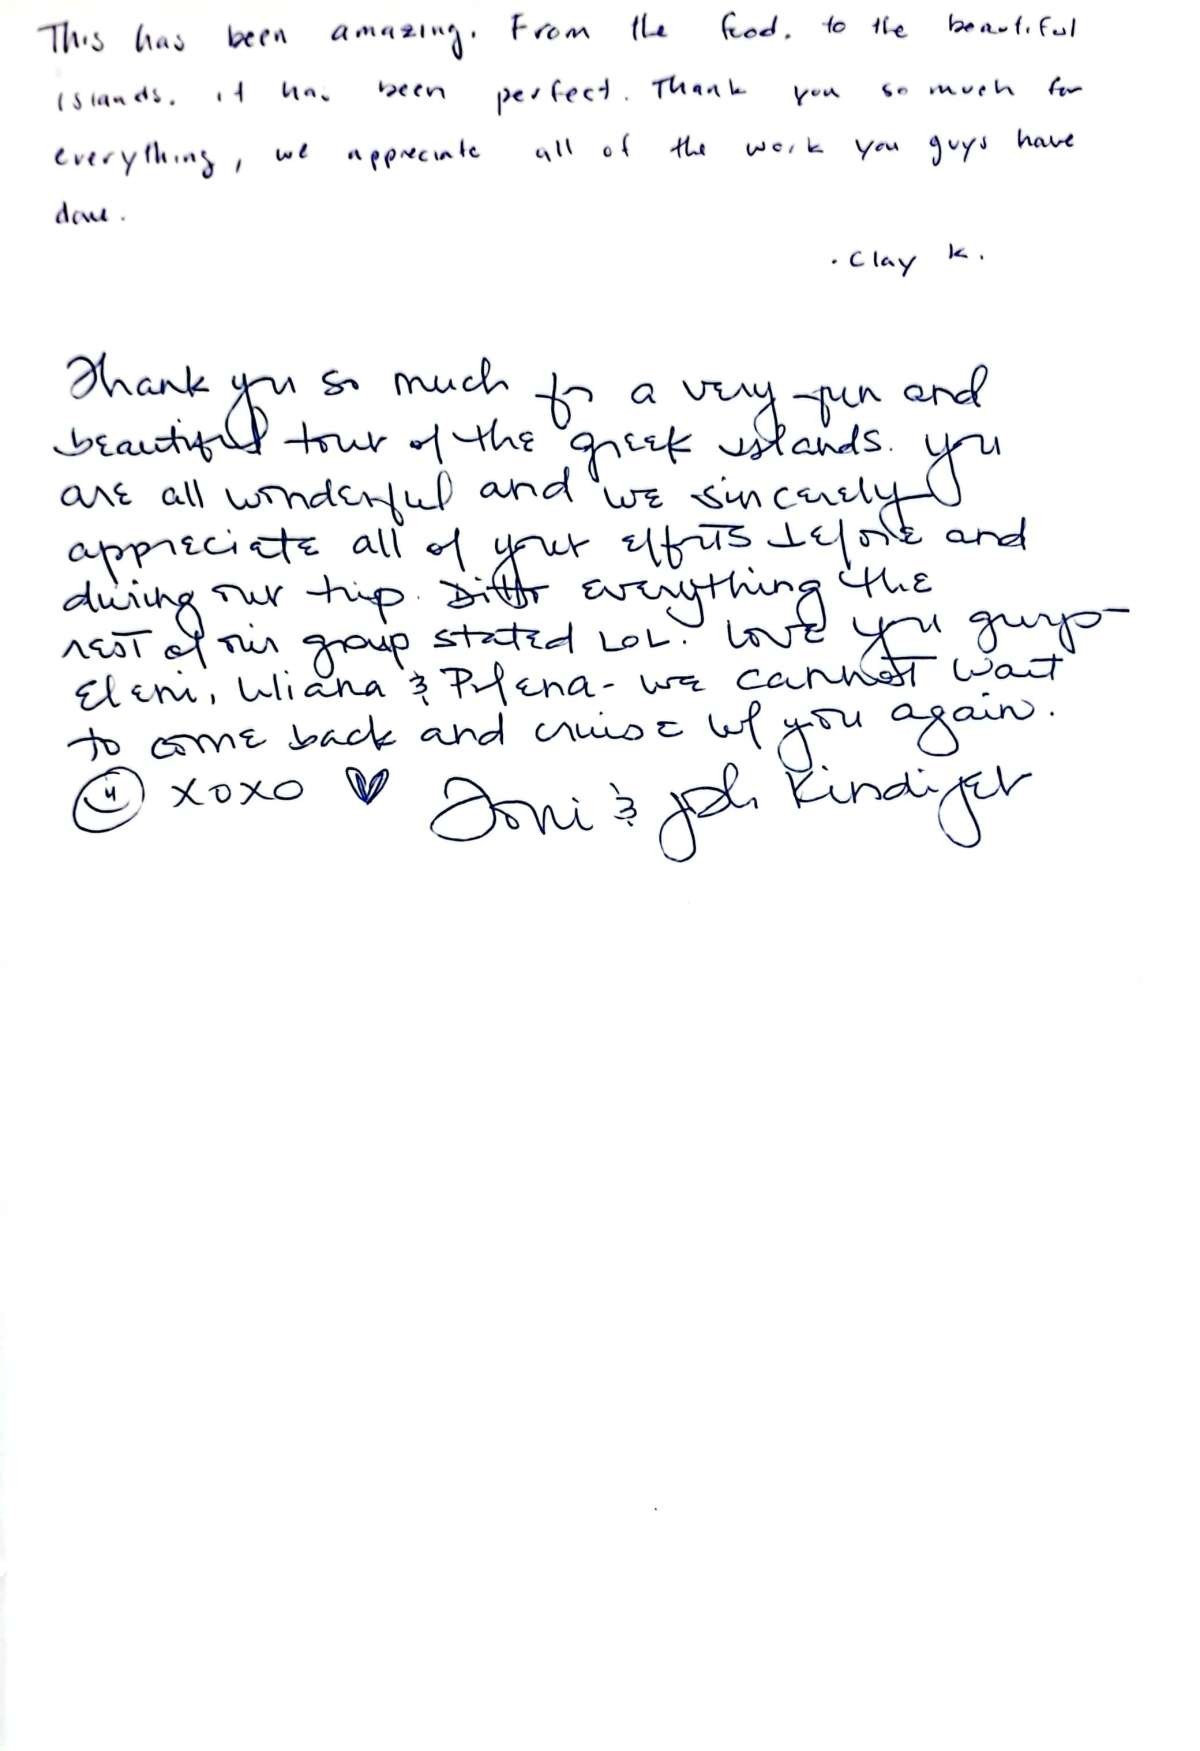 This has been amazing. From the food. to the beautiful
islands. it has been perfect. Thank you so much for
everything, we appreciate all of the work you guys have
done.
· Clay K.
Thank you so much for a very fun and
beautiful tour of the greek islands. You
are all wonderful and we sincerely
appreciate all of your efforts before and
during our trip. Ditto everything the
rest of our group stated LOL. Love you guys –
Eleni, Uliana & - we cannot wait
to come back and cruise w/ you again.
XOXO Toni & Josh Kindiger